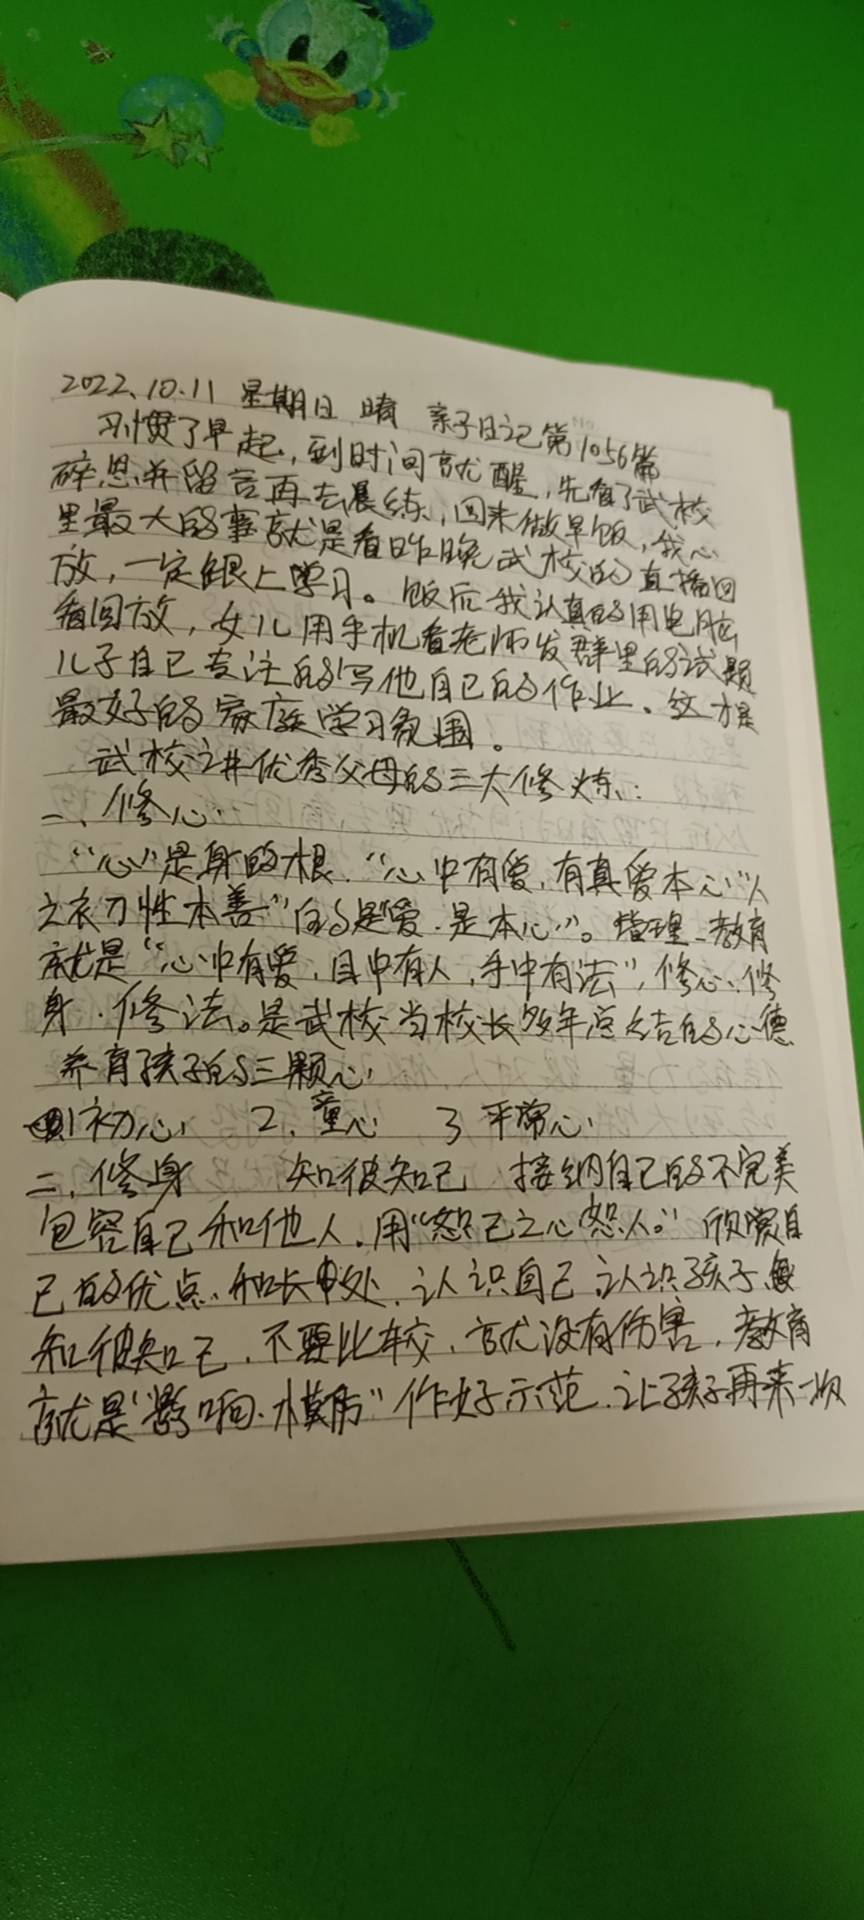 2022.10.11 星期日 晴 亲子日记第1056篇
习惯了早起，到时间就醒，先看了武校
碎思并留言再去晨练，回来做早饭，我心
里最大的事就是看昨晚武校的直播回
放，一定跟上学习。饭后我认真的用电脑
看回放，女儿用手机看老师发群里的试题
儿子自己专注的写他自己的作业。这才是
最好的家庭学习氛围。
武校讲优秀父母的三大修炼：
一、修心
“心”是身的根，“心中有爱，有真爱本心”“人
之初性本善”的是爱，是本心”。管理、教育
就是“心中有爱，目中有人，手中有法”，修心、修
身、修法。是武校当校长多年总结的心德
养育孩子的三颗心
1初心 2、童心 3 平常心
二、修身 知彼知己 接纳自己的不完美
包容自己和他人。用“恕己之心恕人。”欣赏自
己的优点、和长处、认识自己 认识孩子
知彼知己，不要比较，就没有伤害，教育
就是“影响、模仿”作好示范、让孩子再来一次